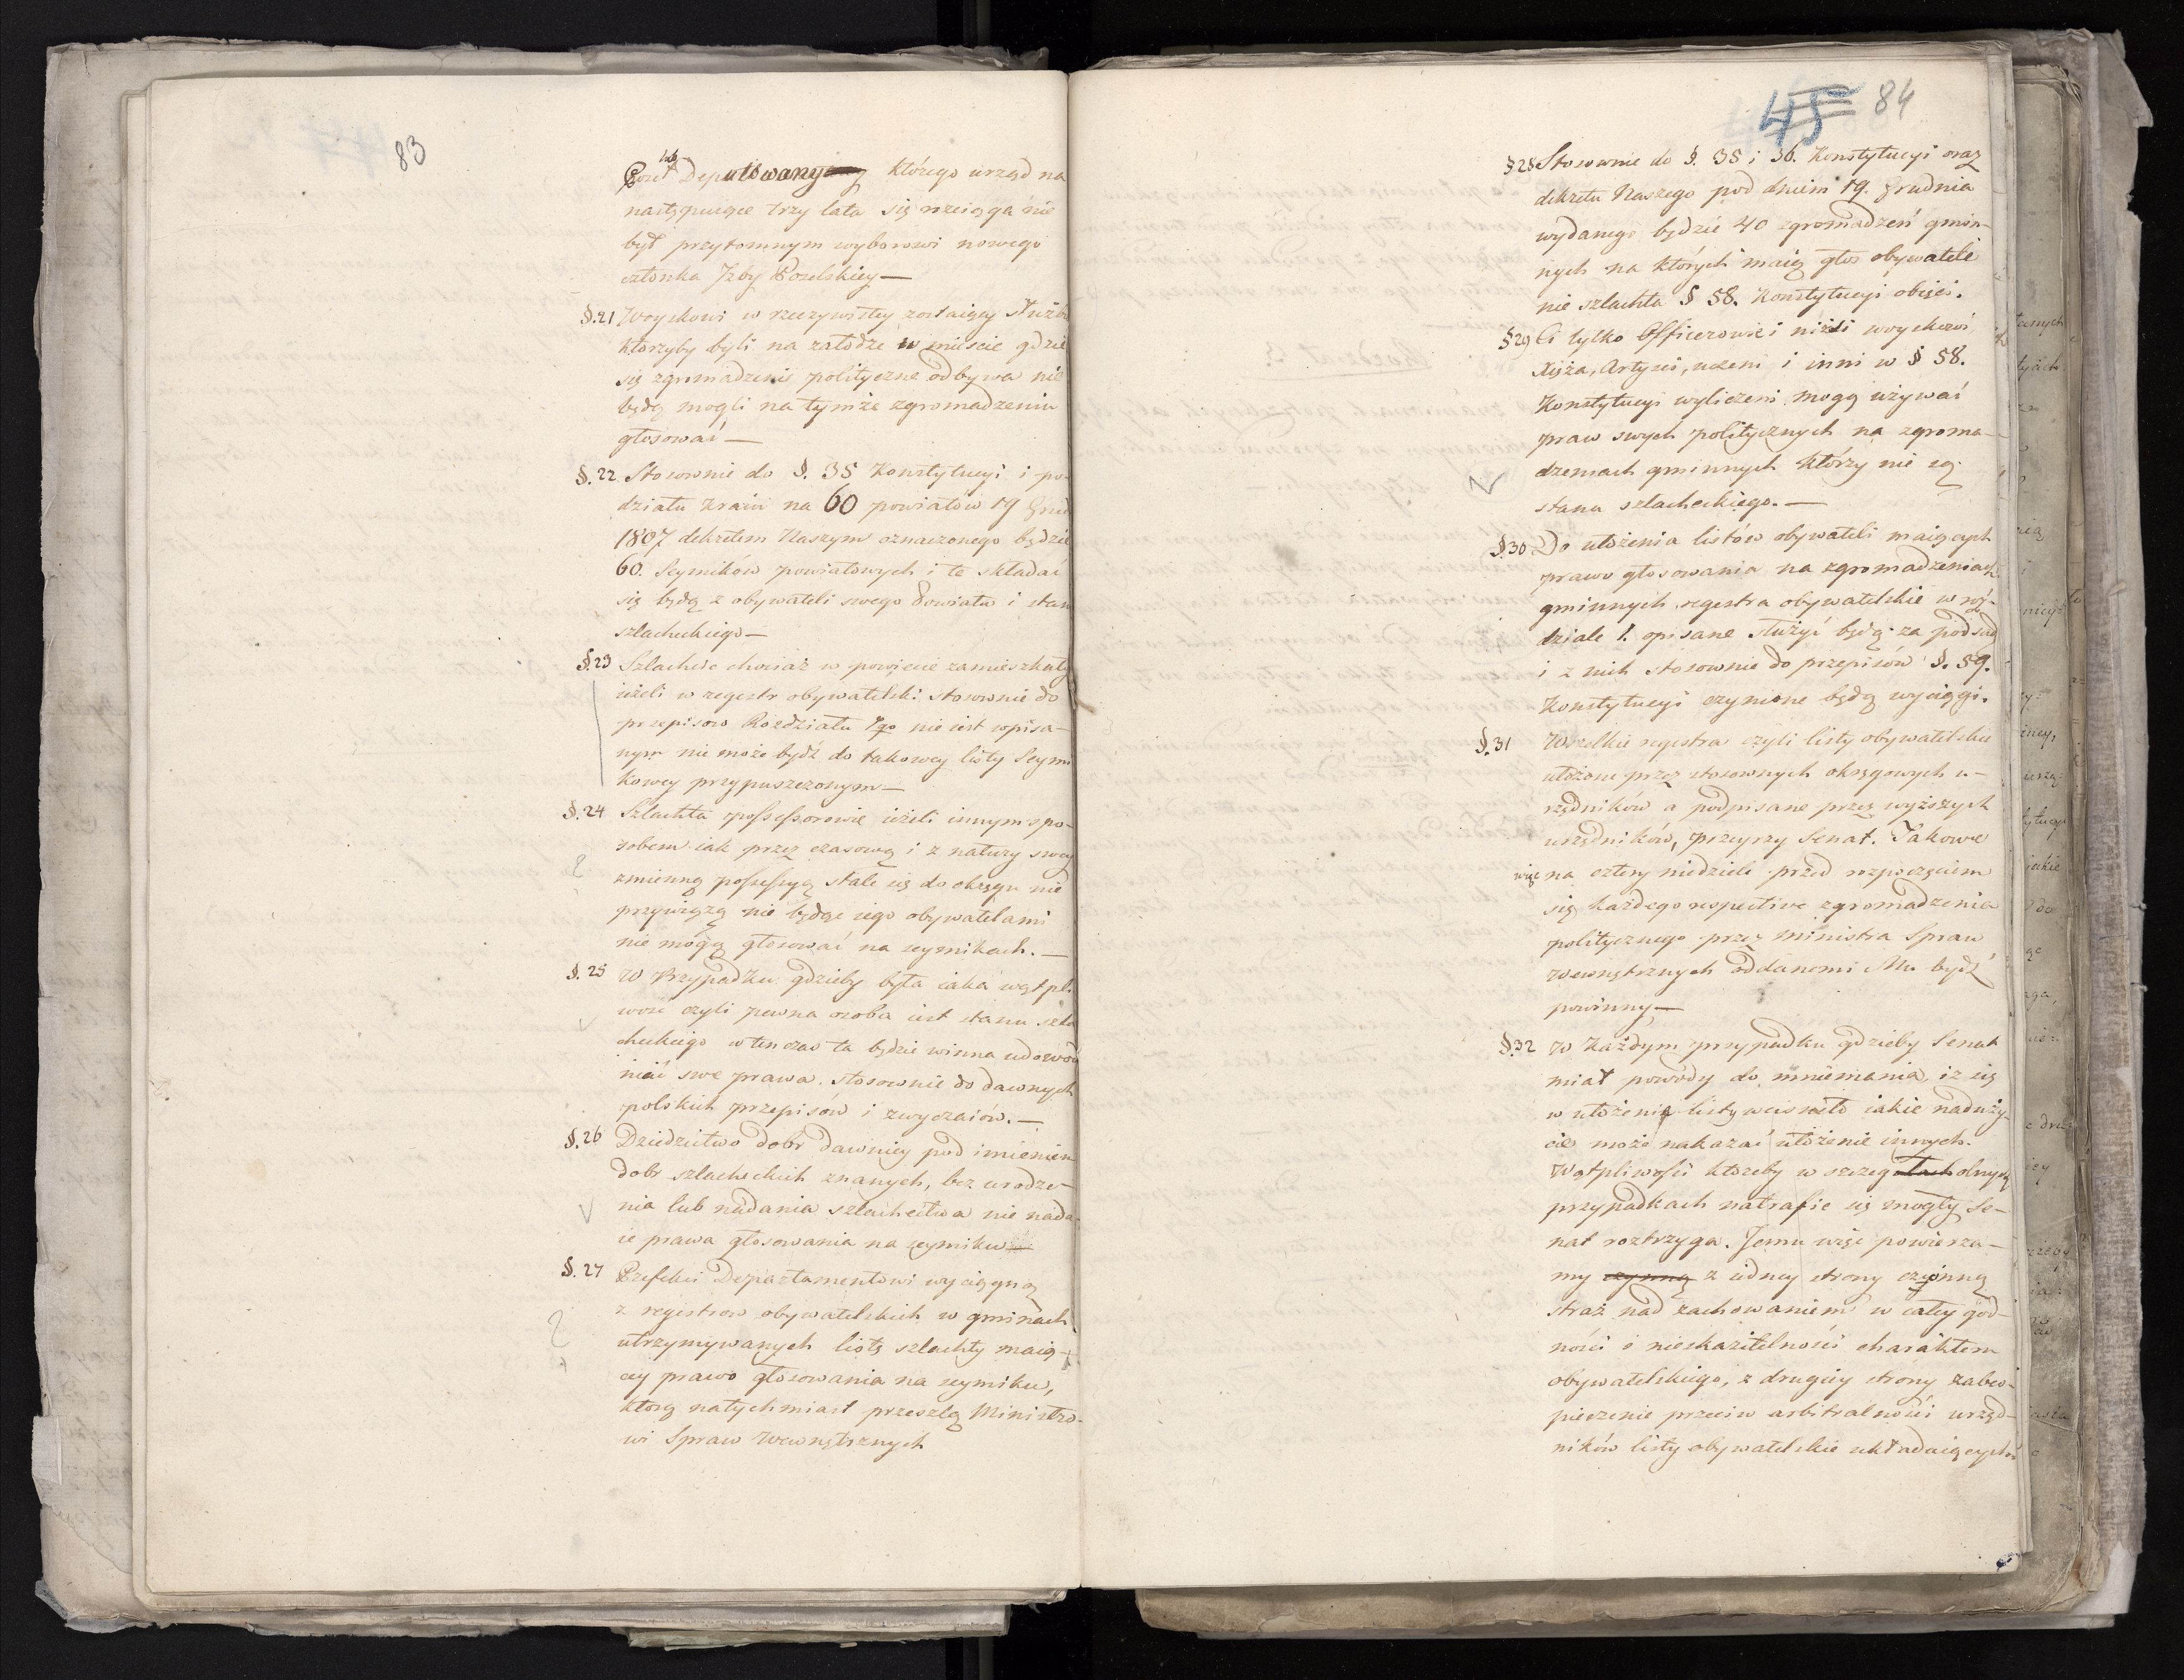 83
lub
Poseł Deputowany którego urząd na
następuiące trzy lata się rozciąga nie
był przytomnym wyborowi nowego
członka Jzby Poselskiey —
§.21 Woyskowi w rzeczywistey zostaiący służbie
którzyby byli na załodze w mieście gdzie
się zgromadzenie polityczne odbywa nie
będą mogli na tymże zgromadzeniu
głosować —
§.22 Stosownie do §. 35 Konstytucyi i po-
działu kraiu na 60 powiatów 19 Grud
1807 dekretem Naszym oznaczonego będzie
60. Seymików powiatowych i te składać
się będą z obywateli swego Powiatu i stanu
szlacheckiego —
§.23 Szlachcic chociaż w powiecie zamieszkały
ieżeli w regestr obywatelski stosownie do
przepisow Rozdziału 1go nie iest wpisa-
nym nie może bydź do takowey listy Seymi
kowey przypuszczonym —
§.24 Szlachta possessorowie ieżeli innym spo-
sobem iak przez czasową i z natury swey
zmienną possessyą stale się do okręgu nie
przywiążą nie będąc iego obywatelami
nie mogą głosować na seymikach. —
§.25 W Przypadku gdzieby była iaka wątpli
wość czyli pewna osoba iest stanu szla
checkiego wtenczas ta będzie winna udowod
nić swe prawa stosownie do dawnych
polskich przepisów i zwyczaiów. —
§.26 Dziedzictwo dobr dawniey pod imieniem
dobr szlacheckich znanych, bez urodze-
nia lub nadania szlachectwa nie nada-
ie prawa głosowania na seymiku —
§.27 Prefekci Departamentowi wyciągną
z regestrow obywatelskich w gminach
utrzymywanych listę szlachty maią-
cey prawo głosowania na seymiku,
którą natychmiast przeszlą Ministro-
wi Spraw Wewnętrznych
45 84
§28 Stosownie do §. 35 i 36. Konstytucyi oraz
dekretu Naszego pod dniem 19. Grudnia
wydanego będzie 40 zgromadzeń gmin-
nych na których maią głos obywatele
nie szlachta § 58. Konstytucyi obięci.
§29 Ci tylko Officerowie i niżsi woyskowi,
Xięża, Artyści, uczeni i inni w § 58.
Konstytucyi wyliczeni mogą używać
praw swych politycznych na zgroma-
dzeniach gminnych którzy nie są
stanu szlacheckiego. —
§.30 Do ułożenia listów obywateli maiących
prawo głosowania na zgromadzeniach
gminnych regestra obywatelskie w roz-
dziale 1. opisane służyć będą za podsad
i z nich stosownie do przepisów §. 59.
Konstytucyi czynione będą wyciągi.
§.31 Wszelkie regestra czyli listy obywatelskie
ułożone przez stosownych okręgowych u-
rzędników a podpisane przez wyższych
urzędników, przeyrzy Senat. Takowe
więc na cztery niedziele przed rozpoczęciem
się każdego respective zgromadzenia
politycznego przez Ministra Spraw
Wewnętrznych oddanemi Mu bydź
powinny —
§.32 W Każdym przypadku gdzieby Senat
miał powody do mniemania, iż się
w ułożenie listy wcisnęło iakie naduży-
cie może nakazać ułożenie innych.
Wątpliwości któreby w szczegółach olnych
przypadkach natrafić się mogły Se-
nat roztrzyga. Jemu więc powierza-
my czynną z iedney strony czynną
straż nad zachowaniem w całey god-
ności i nieskazitelności charakteru
obywatelskiego, z drugiey strony zabez-
pieczenie przeciw arbitralności urzęd-
ników listy obywatelskie układaiących